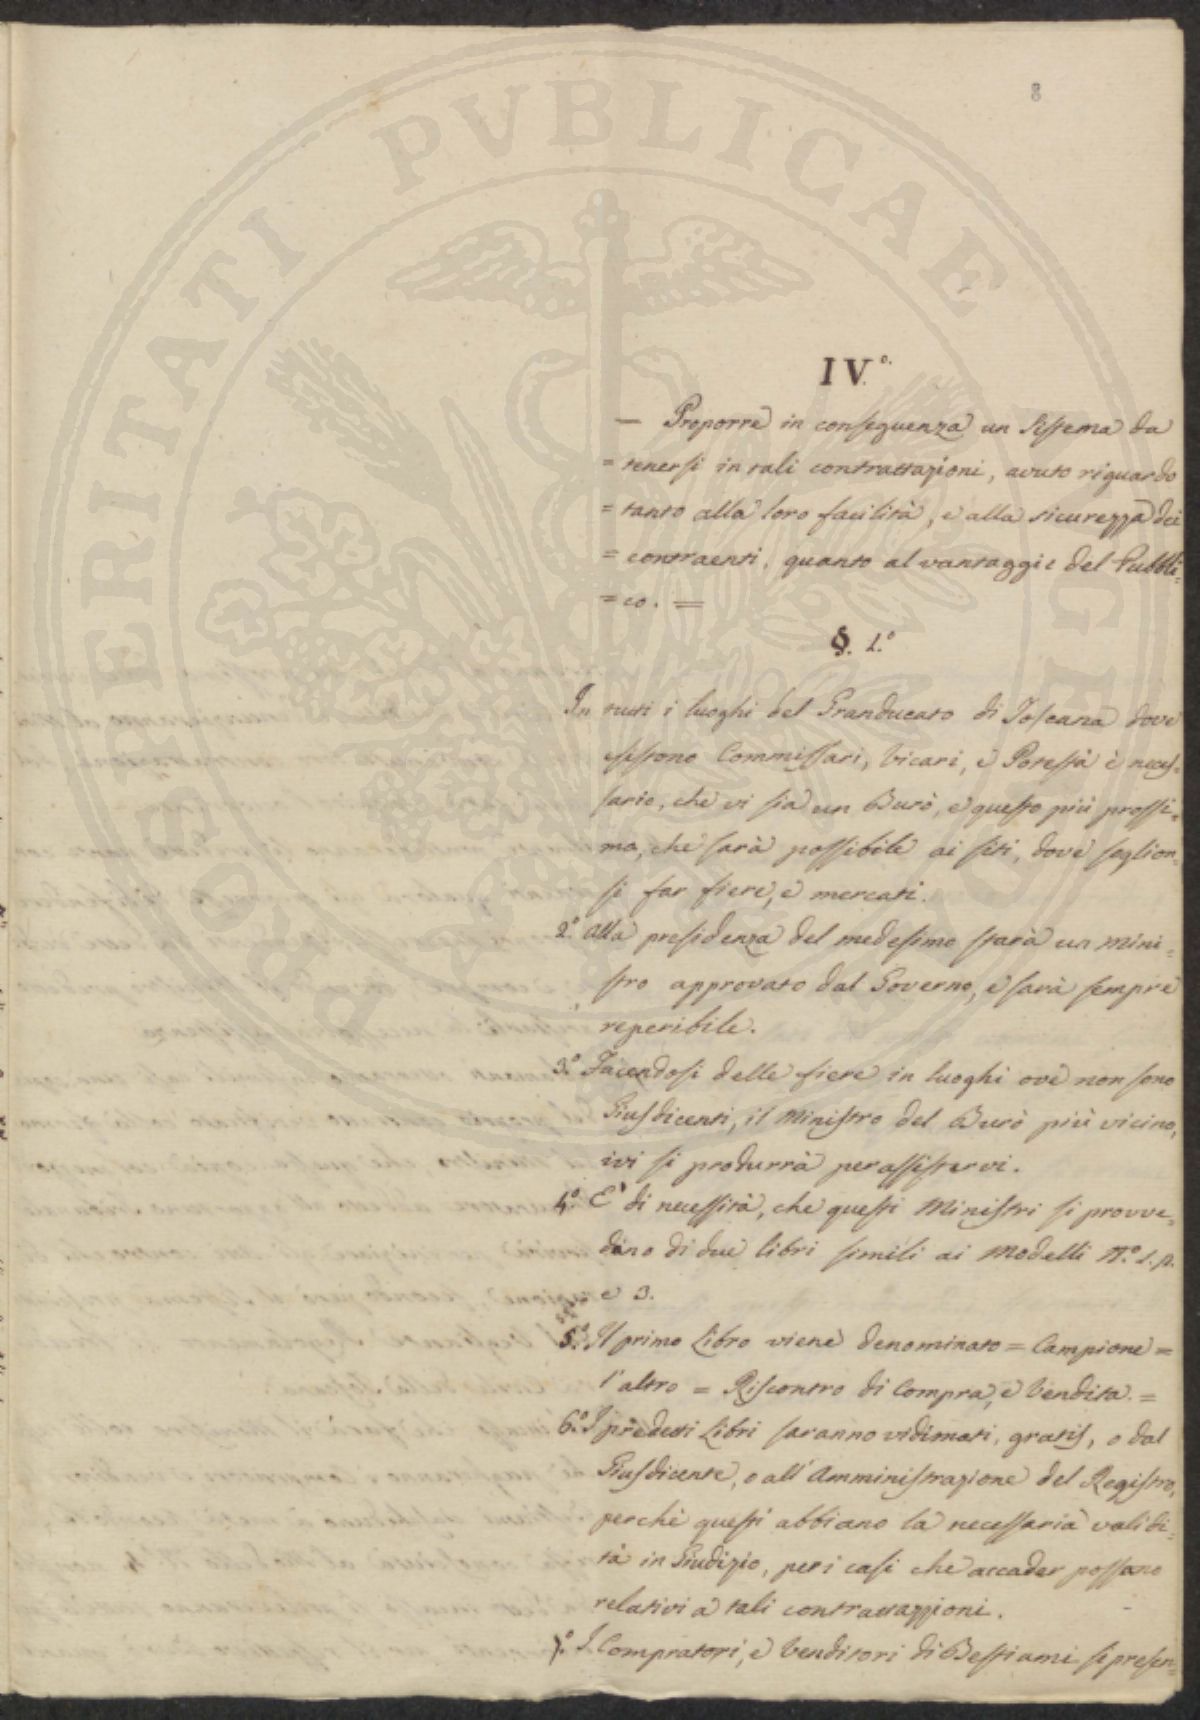 8
IV.°
— Proporre in conseguenza un Sistema da
= tenersi in tali contrattazioni, avuto riguardo
= tanto alla loro facilità, e alla sicurezza dei
= contraenti, quanto al vantaggio del Pubbli=
= co. =
§. 1.°
In tutti i luoghi del Granducato di Toscana dove
esistono Commissari, Vicari, e Potestà è neces=
sario, che vi sia un Burò, e questo più prossi=
mo, che sarà possibile ai siti, dove soglion=
si far fiere, e mercati.
2.° Alla presidenza del medesimo starà un Mini=
stro approvato dal Governo, e sarà sempre
reperibile.
3.° Facendosi delle fiere in luoghi ove non sono
Giusdicenti, il Ministro del Burò più vicino,
ivi si produrrà per assistervi.
4.° E' di necessità, che questi Ministri si provve=
dino di due libri simili ai Modelli N.° 1. 2.
e 3.
5.° Il primo Libro viene denominato = Campione =
l'altro = Riscontro di Compra, e Vendita. =
6.° I predetti Libri saranno vidimati, gratis, o dal
Giusdicente, o all'Amministrazione del Registro,
perchè questi abbiano la necessaria validi=
tà in Giudizio, per i casi che accader possano
relativi a tali contrattazzioni.
7.° I Compratori, e Venditori di Bestiami si presen=
PROSPERITATI PVBLICAE